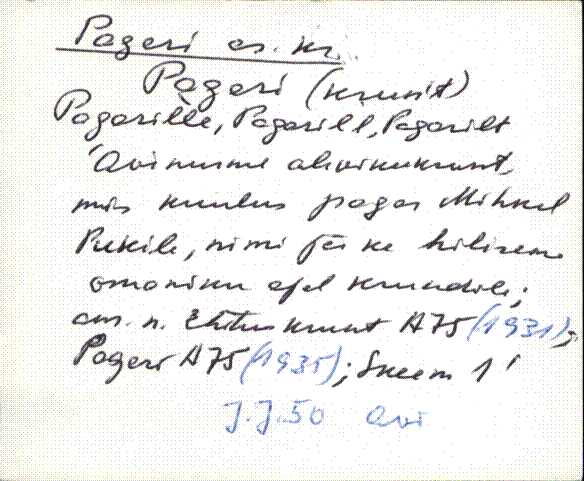 Pageri as. kr.
Pageri (krunt)
Pagarille, Pagarill, Pagarilt
'Avinurme alevikukrunt,
mis kuulus pagar Mihkel
Pukile, nimi jäi ka hilisema
omaniku ajal krundile;
am. n. Ehituskrunt A75 (1931);
Pageri A75 (1935); Skeem 1'
J.J.50 Avi